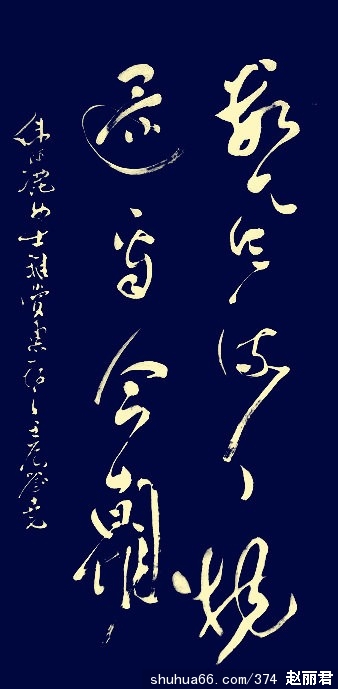 數風流人物
還看今朝
女士雅賞
shuhua66.com/374 赵丽君